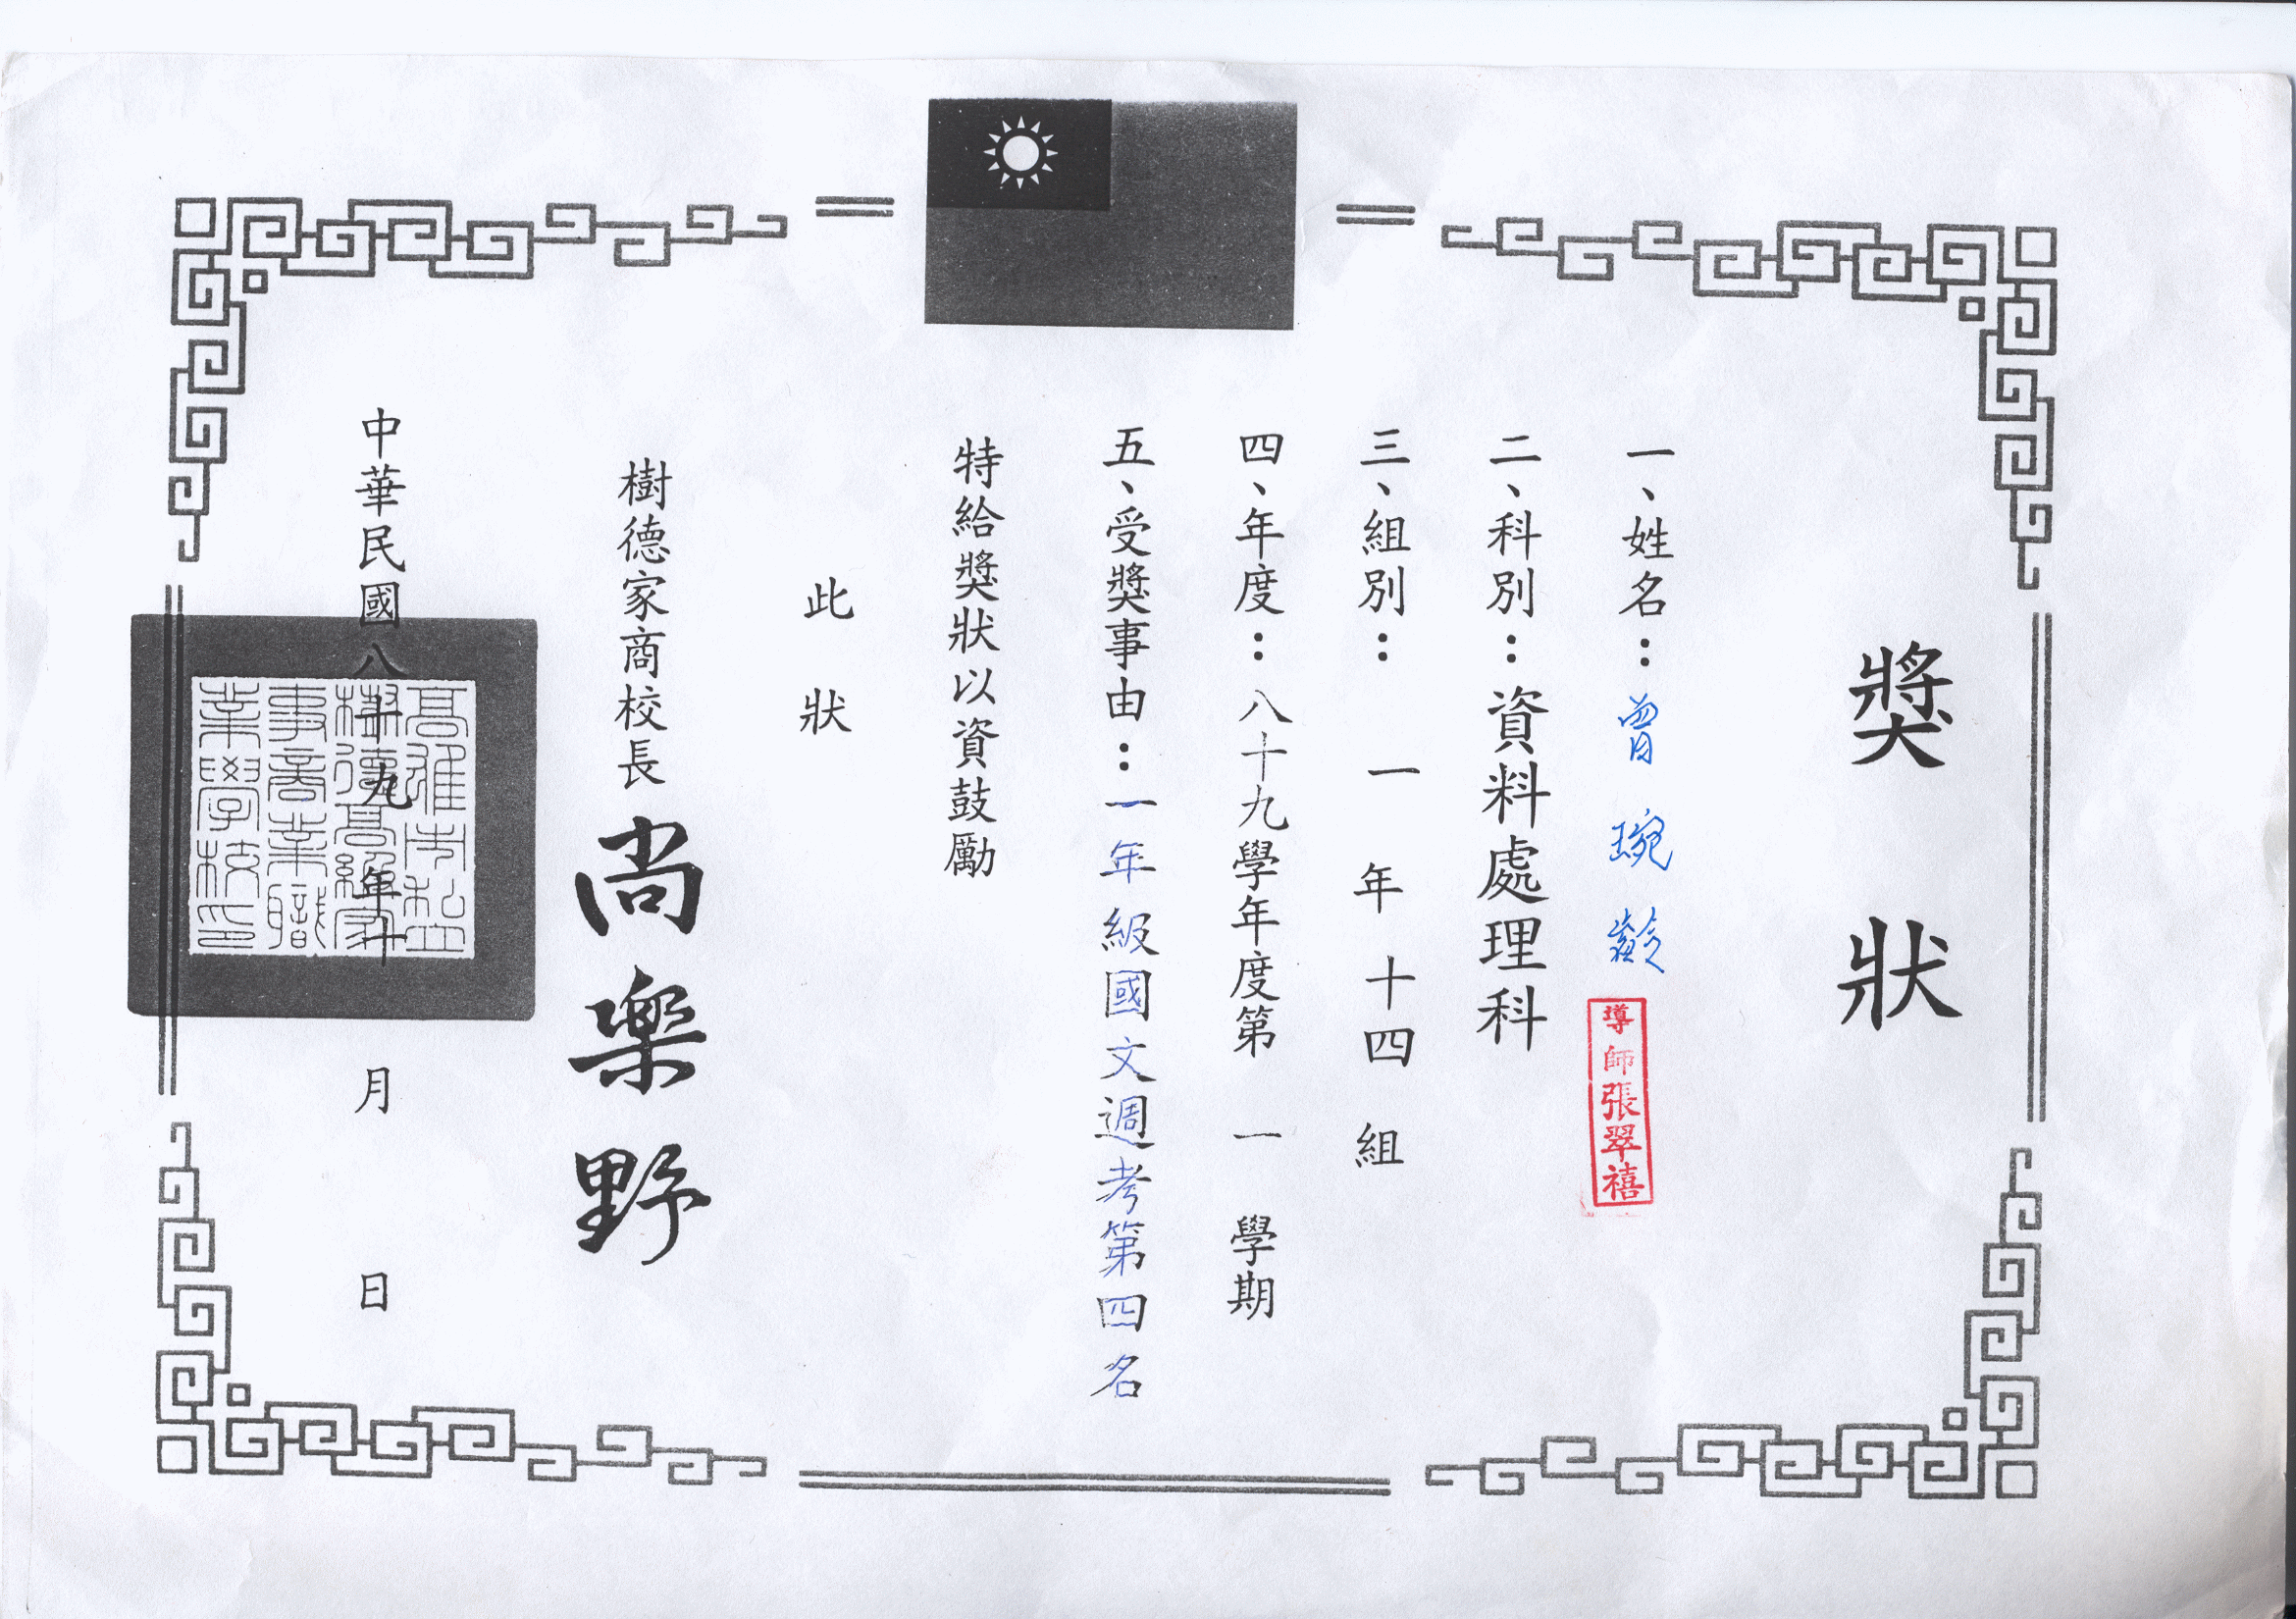 獎狀
一、姓名：曾琬齡
導師張翠禧
二、科別：資料處理科
三、組別：一年十四組
四、年度：八十九學年度第一學期
五、受獎事由：一年級國文週考第四名
特給獎狀以資鼓勵
此狀
樹德家商校長尚樂野
中華民國八十九年十月日
高雄市私立
樹德高級家
事商業職
業學校印